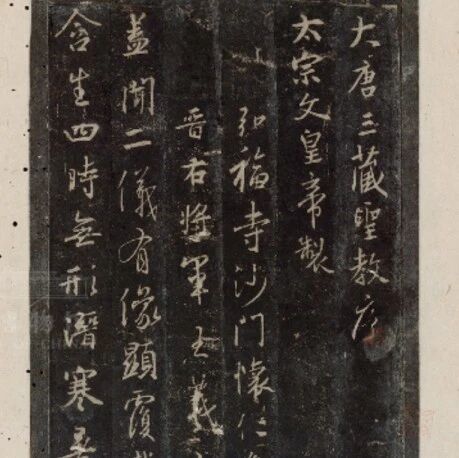 大唐三藏聖教序
太宗文皇帝製
弘福寺沙門懷仁
晋右將軍王羲
盖聞二儀有像顯覆
含生四時無形潛寒